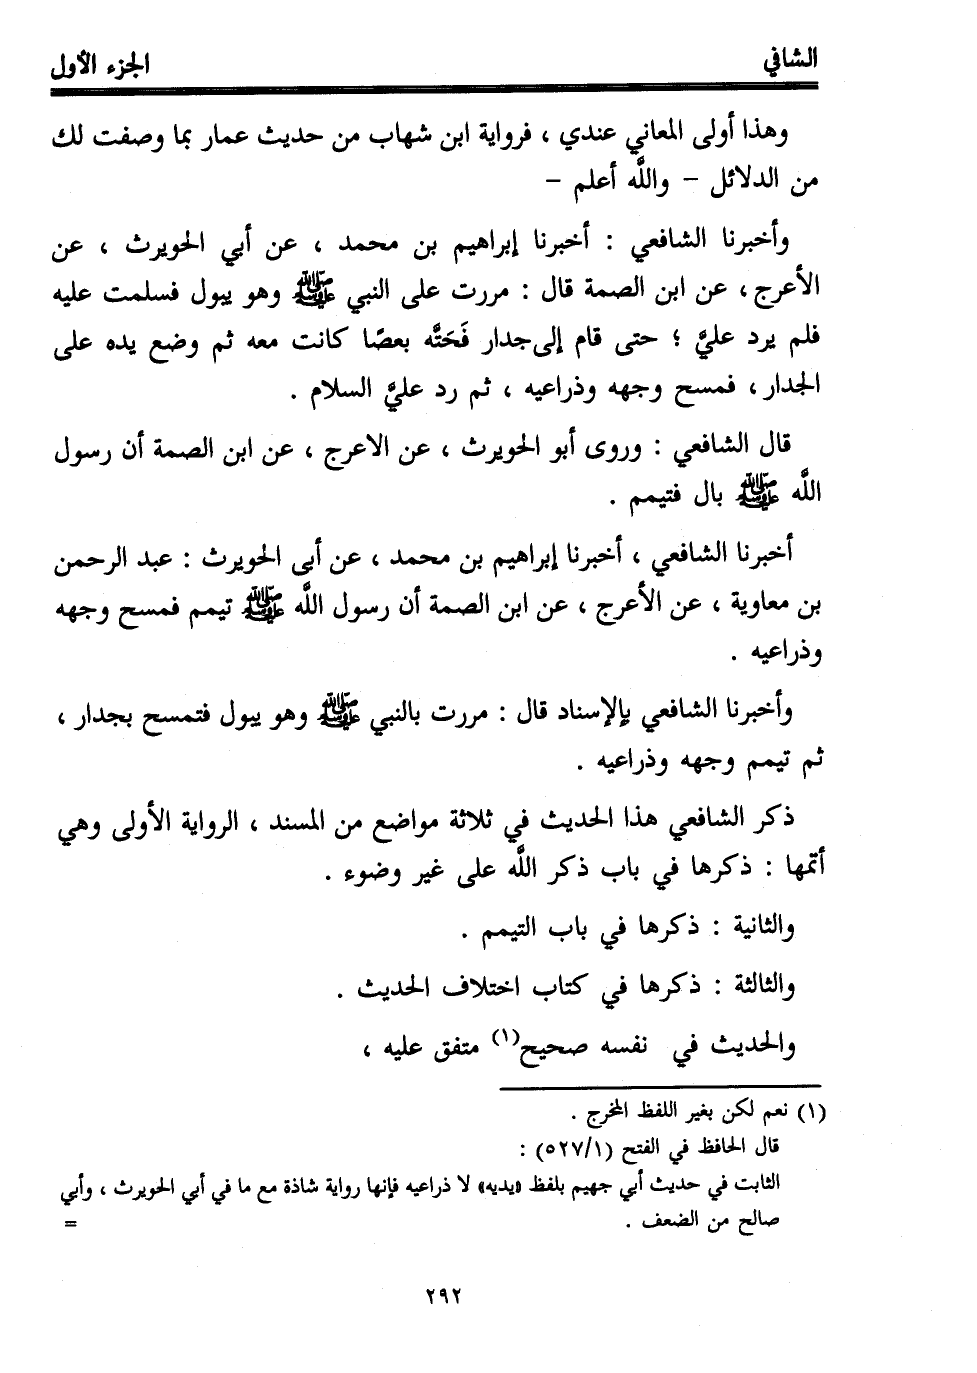 الشافي
الجزء الأول
وهذا أولى المعاني عندي ، فرواية ابن شهاب من حديث عمار بما وصفت لك
من الدلائل – واللَّه أعلم –
وأخبرنا الشافعي : أخبرنا إبراهيم بن محمد ، عن أبي الحويرث ، عن
الأعرج ، عن ابن الصمة قال : مررت على النبي ﷺ وهو يبول فسلمت عليه
فلم يرد عليَّ ؛ حتى قام إلى جدار فَحَتَّه بعصًا كانت معه ثم وضع يده على
الجدار ، فمسح وجهه وذراعيه ، ثم رد عليَّ السلام .
قال الشافعي : وروى أبو الحويرث ، عن الاعرج ، عن ابن الصمة أن رسول
اللَّه ﷺ بال فتيمم .
أخبرنا الشافعي ، أخبرنا إبراهيم بن محمد ، عن أبى الحويرث : عبد الرحمن
بن معاوية ، عن الأعرج ، عن ابن الصمة أن رسول اللَّه ﷺ تيمم فمسح وجهه
وذراعيه .
وأخبرنا الشافعي بالإسناد قال : مررت بالنبي ﷺ وهو يبول فتمسح بجدار ،
ثم تيمم وجهه وذراعيه .
ذكر الشافعي هذا الحديث في ثلاثة مواضع من المسند ، الرواية الأولى وهي
أتمها : ذكرها في باب ذكر اللَّه على غير وضوء .
والثانية : ذكرها في باب التيمم .
والثالثة : ذكرها في كتاب اختلاف الحديث .
والحديث في نفسه صحيح(١) متفق عليه ،
(١) نعم لكن بغير اللفظ المخرج .
قال الحافظ في الفتح (٥٢٧/١) :
الثابت في حديث أبي جهيم بلفظ «يديه» لا ذراعيه فإنها رواية شاذة مع ما في أبي الحويرث ، وأبي
صالح من الضعف . =
٢٩٢